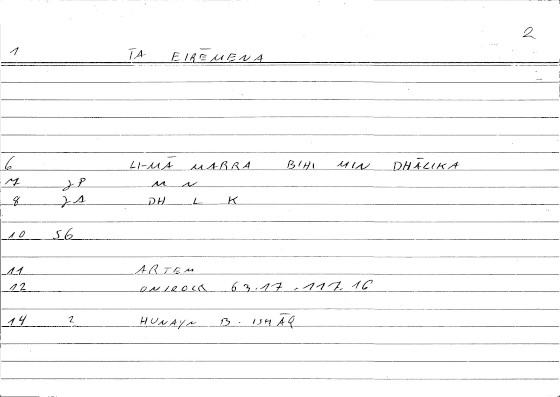 2
1 TA EIRĒMENA
6 LI-MĀ MARRA BIHI MIN DHĀLIKA
7 2P M N
8 2A DH L K
10 56
11 ARTEM
12 ONIROCR 63.17 - 117.16
14 2 HUNAYN B. ISḤĀQ